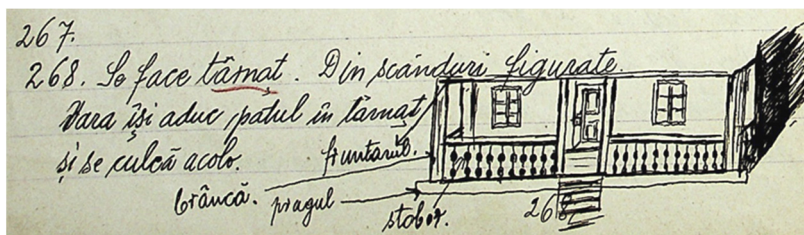 267.
268. Se face târnaț. Din scânduri figurate.
Vara își aduc patul în târnaț
și se culcă acolo.
fruntarul.
brâncă.
pragul
stobor.
268